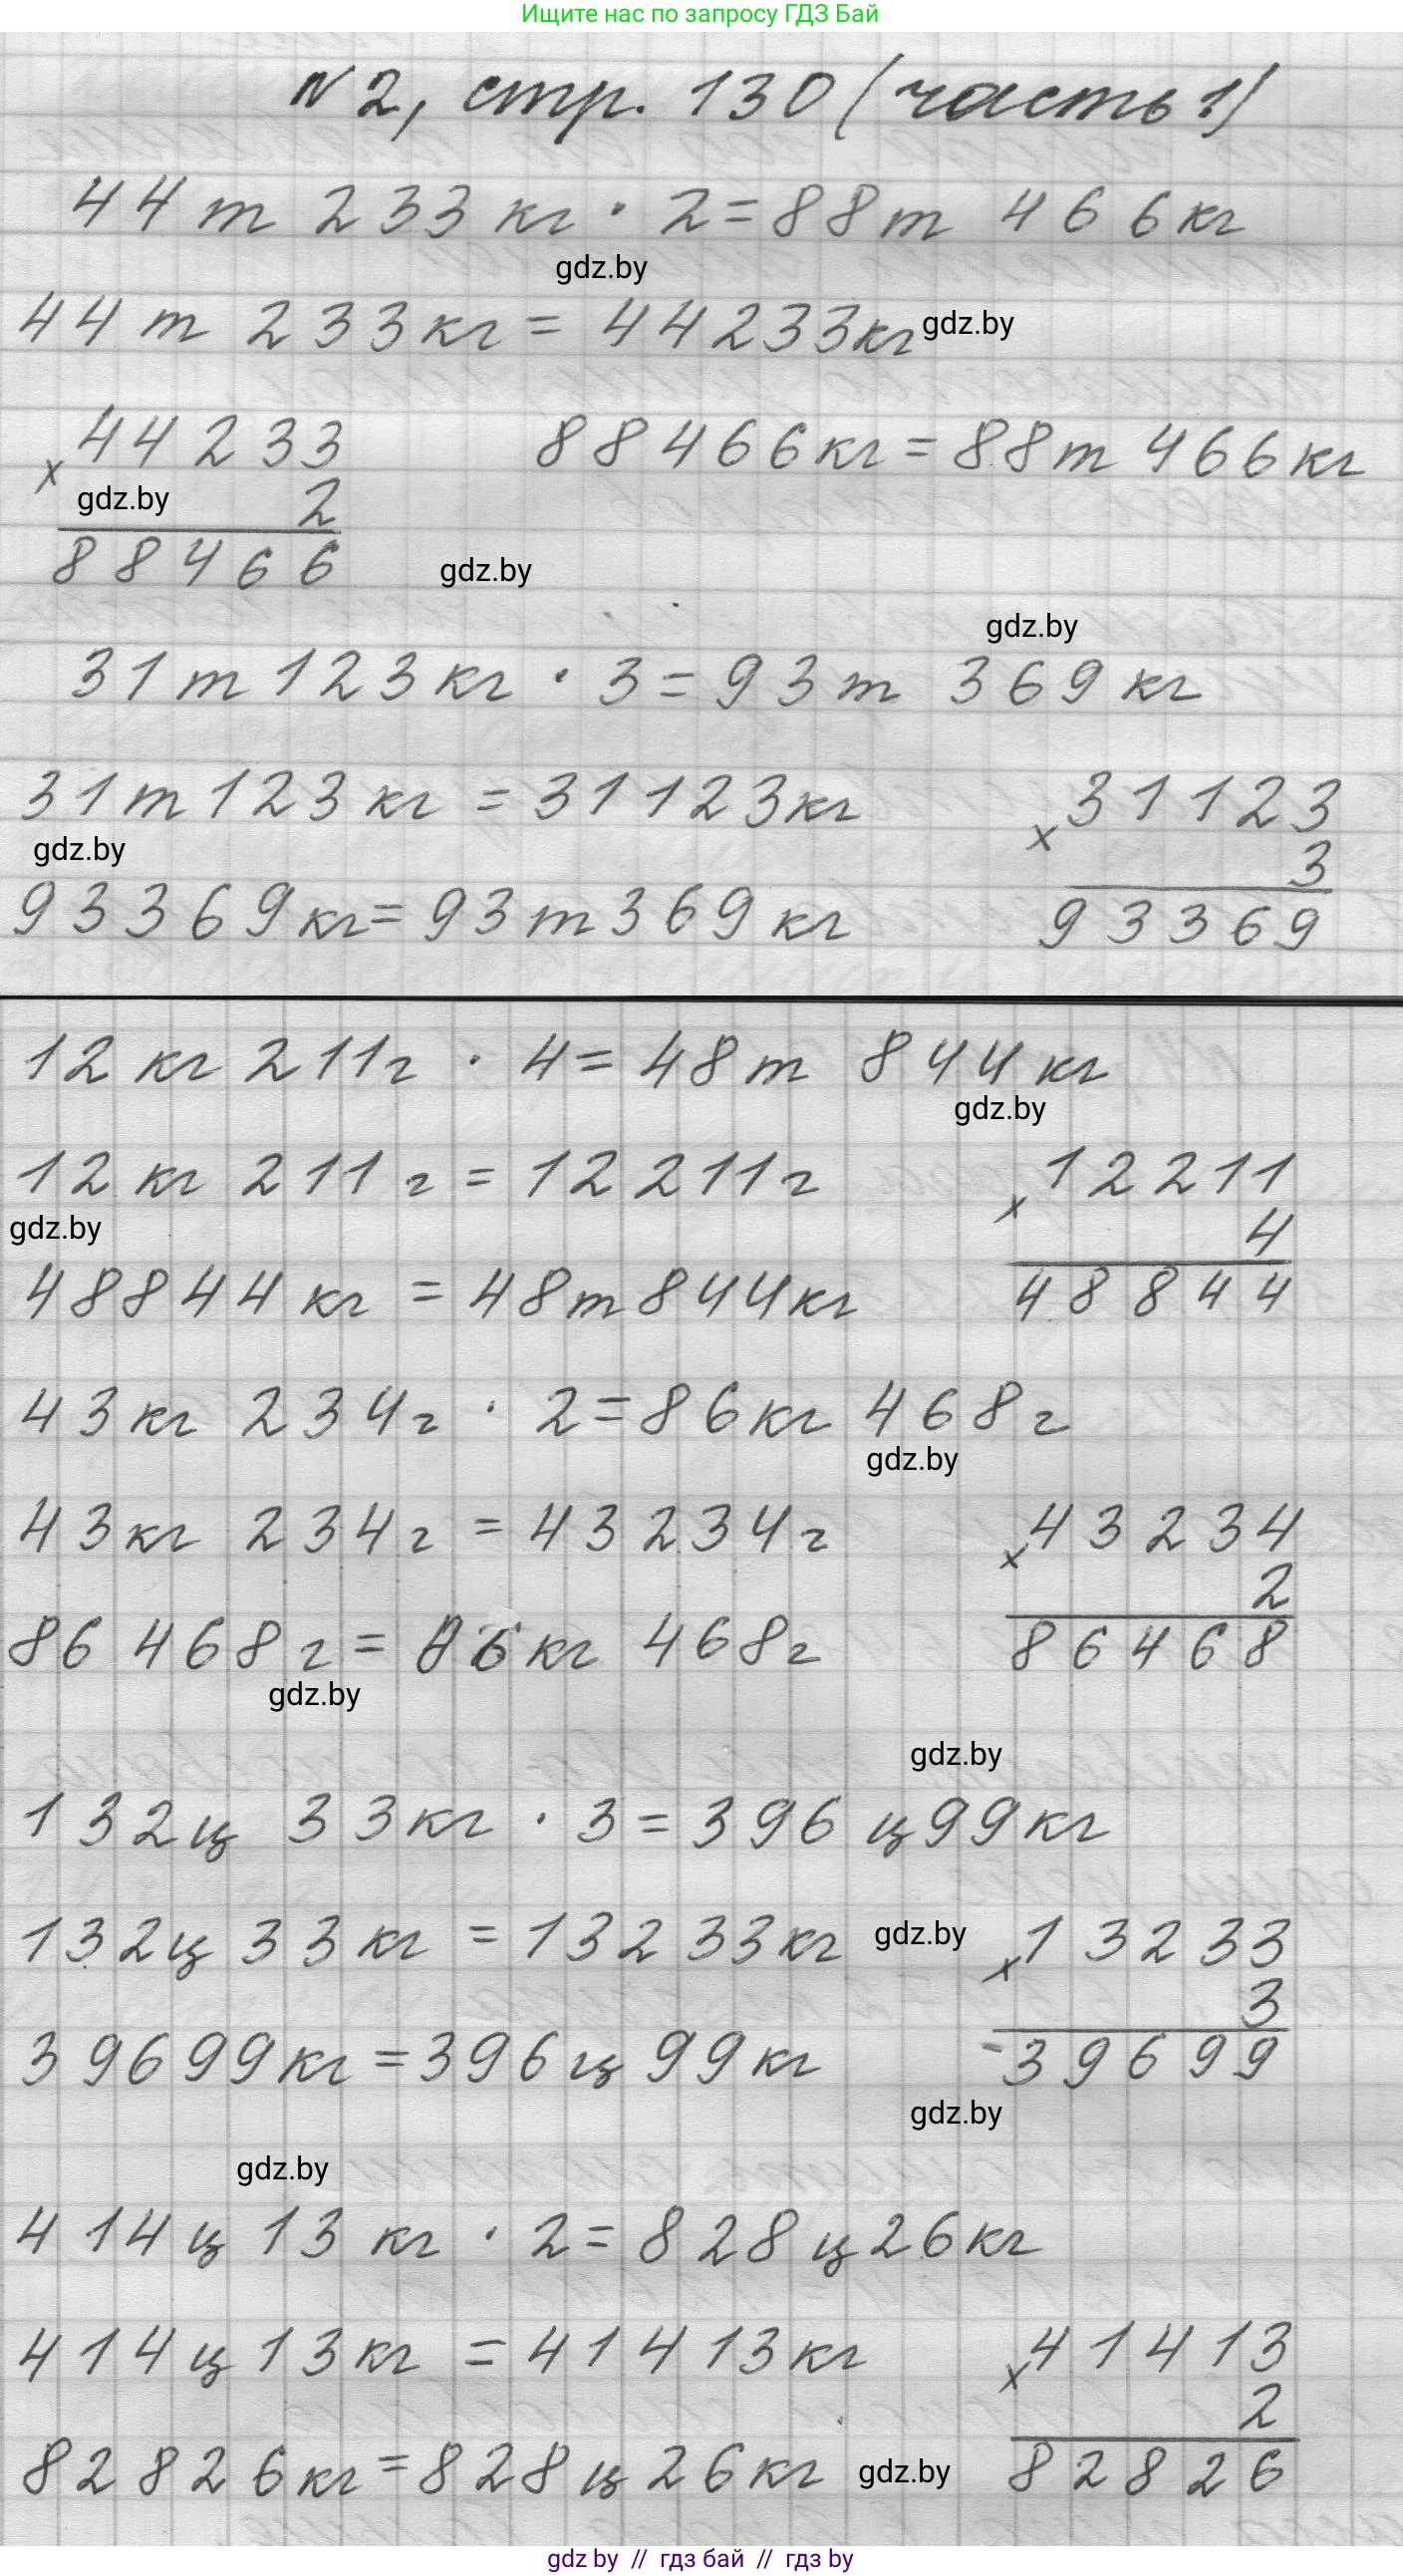 Ищите нас по запросу ГДЗ Бай
№2, стр. 130 (часть 1)
44 т 233 кг · 2 = 88 т 466 кг
gdz.by
44 т 233 кг = 44233 кг gdz.by
× 44233
gdz.by 2
88466
88466 кг = 88 т 466 кг
gdz.by
gdz.by
31 т 123 кг · 3 = 93 т 369 кг
31 т 123 кг = 31123 кг
gdz.by
93369 кг = 93 т 369 кг
× 31123
3
93369
12 кг 211 г · 4 = 48 т 844 кг
gdz.by
12 кг 211 г = 12211 г
gdz.by
48844 кг = 48 т 844 кг
× 12211
4
48844
43 кг 234 г · 2 = 86 кг 468 г
gdz.by
43 кг 234 г = 43234 г
86 468 г = 86 кг 468 г
gdz.by
× 43234
2
86468
gdz.by
132 ц 33 кг · 3 = 396 ц 99 кг
132 ц 33 кг = 13233 кг gdz.by
39699 кг = 396 ц 99 кг
× 13233
3
39699
gdz.by
gdz.by
414 ц 13 кг · 2 = 828 ц 26 кг
414 ц 13 кг = 41413 кг
82826 кг = 828 ц 26 кг gdz.by
× 41413
2
82826
gdz by // гдз бай // гдз by